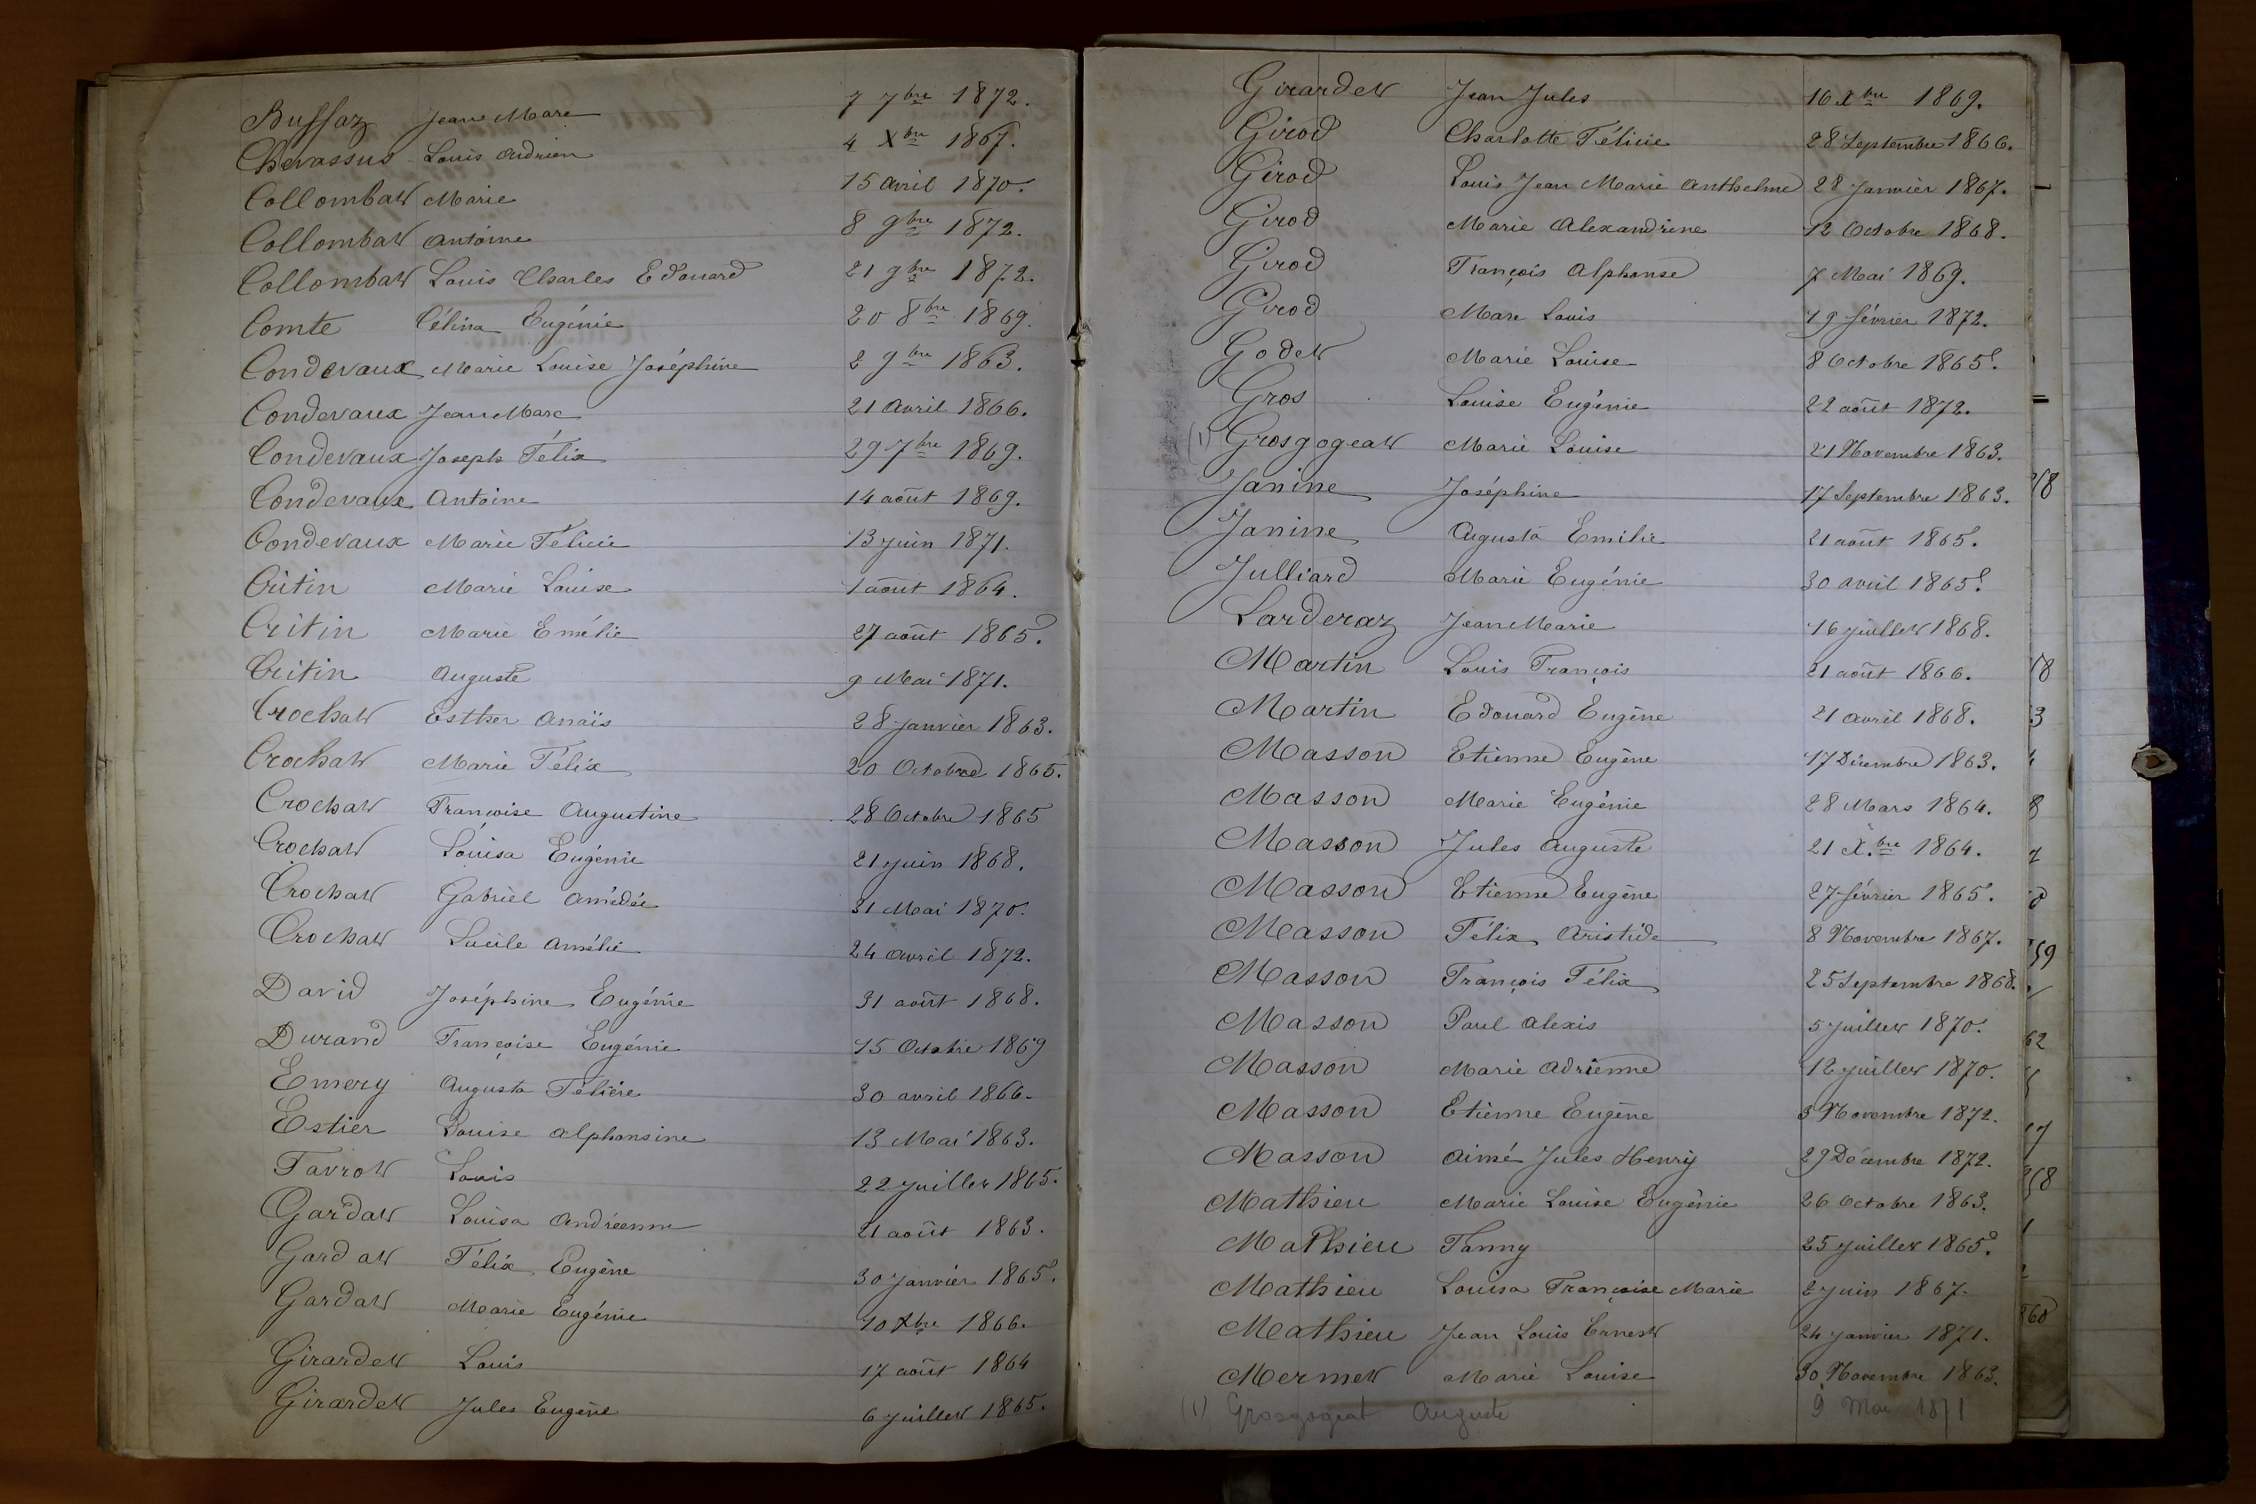 Buffaz Jean Marc 7 7bre 1872.
Chevassus Louis Adrien 4 Xbre 1867.
Collombat Marie 15 avril 1870.
Collombat Antoine 8 9bre 1872.
Collombat Louis Charles Edouard 21 9bre 1872.
Comte Célina Eugénie 20 8bre 1869.
Condevaux Marie Louise Joséphine 2 9bre 1863.
Condevaux Jean Marc 21 Avril 1866.
Condevaux Joseph Félix 29 7bre 1869.
Condevaux Antoine 14 août 1869.
Condevaux Marie Félicie 13 juin 1871.
Critin Marie Louise 1 août 1864.
Critin Marie Emélie 27 août 1865.
Critin Auguste 9 Mai 1871.
Crochat Esther Anaïs 28 janvier 1863.
Crochat Marie Félix 20 Octobre 1865.
Crochat Françoise Augustine 28 Octobre 1865
Crochat Louisa Eugénie 21 juin 1868.
Crochat Gabriel Amédée 31 Mai 1870.
Crochat Lucile Amélie 24 avril 1872.
David Joséphine Eugénie 31 août 1868.
Durand Françoise Eugénie 15 Octobre 1869
Emery Augusta Félicie 30 avril 1866.
Estier Louise Alphonsine 13 Mai 1863.
Favrot Louis 22 juillet 1865.
Gardat Louisa Andréenne 21 août 1863.
Gardat Félix Eugène 30 janvier 1865.
Gardat Marie Eugénie 10 Xbre 1866.
Girardet Louis 17 août 1864
Girardet Jules Eugène 6 juillet 1865.
Girardet Jean Jules 16 Xbre 1869.
Girod Charlotte Félicie 28 Septembre 1866.
Girod Louis Jean Marie Anthelme 28 janvier 1867.
Girod Marie Alexandrine 12 Octobre 1868.
Girod François Alphonse 7 Mai 1869.
Girod Marc Louis 19 février 1872.
Godet Marie Louise 8 Octobre 1865.
Gros Louise Eugénie 22 août 1872.
(1) Grosgogeat Marie Louise 21 Novembre 1863.
Janine Joséphine 17 Septembre 1863.
Janine Augusta Emilie 21 août 1865.
Julliard Marie Eugénie 30 avril 1865.
Larderaz Jean Marie 16 juillet 1868.
Martin Louis François 21 août 1866.
Martin Edouard Eugène 21 avril 1868.
Masson Etienne Eugène 17 Décembre 1863.
Masson Marie Eugénie 28 Mars 1864.
Masson Jules Auguste 21 X.bre 1864.
Masson Etienne Eugène 27 février 1865.
Masson Félix Aristide 8 Novembre 1867.
Masson François Félix 25 Septembre 1868.
Masson Paul Alexis 5 juillet 1870.
Masson Marie Adrienne 12 juillet 1870.
Masson Etienne Eugène 3 Novembre 1872.
Masson Aimé Jules Henry 29 Décembre 1872.
Mathieu Marie Louise Eugénie 26 Octobre 1863.
Mathieu Fanny 25 juillet 1865.
Mathieu Louisa Françoise Marie 2 juin 1867.
Mathieu Jean Louis Ernest 24 janvier 1871.
Mermet Marie Louise 30 Novembre 1863.
(1) Grosgogeat Auguste 9 Mai 1871